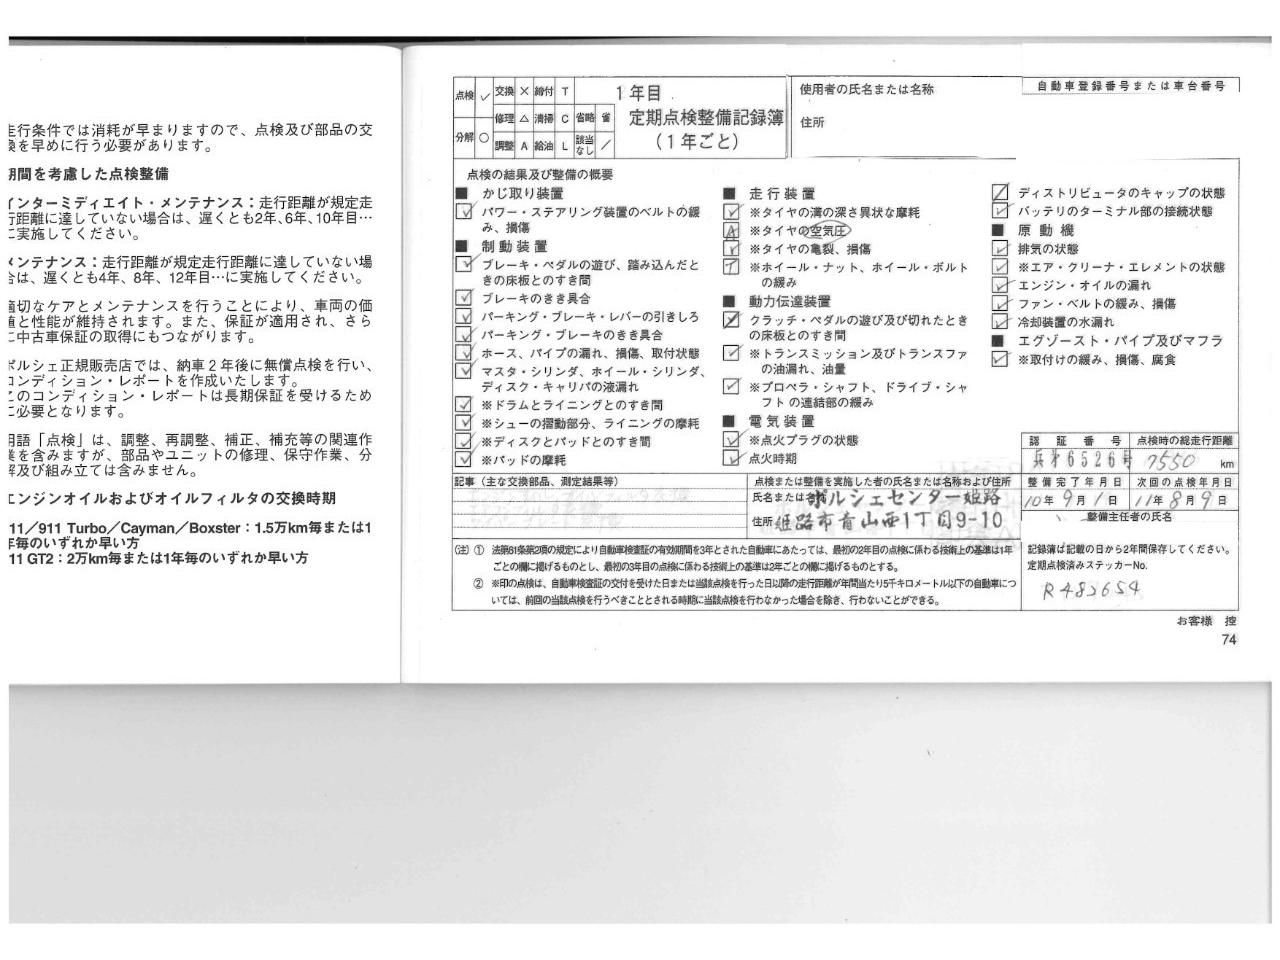 走行条件では消耗が早まりますので、点検及び部品の交
換を早めに行う必要があります。
期間を考慮した点検整備
インターミディエイト・メンテナンス：走行距離が規定走
行距離に達していない場合は、遅くとも2年、6年、10年目…
に実施してください。
メンテナンス：走行距離が規定走行距離に達していない場
合は、遅くとも4年、8年、12年目…に実施してください。
適切なケアとメンテナンスを行うことにより、車両の価
値と性能が維持されます。また、保証が適用され、さら
に中古車保証の取得にもつながります。
ポルシェ正規販売店では、納車２年後に無償点検を行い、
コンディション・レポートを作成いたします。
このコンディション・レポートは長期保証を受けるため
に必要となります。
用語「点検」は、調整、再調整、補正、補充等の関連作
業を含みますが、部品やユニットの修理、保守作業、分
解及び組み立ては含みません。
エンジンオイルおよびオイルフィルタの交換時期
11／911 Turbo／Cayman／Boxster：1.5万km毎または1
年毎のいずれか早い方
11 GT2：2万km毎または1年毎のいずれか早い方
点検 ✓ 交換 × 締付 T
修理 △ 清掃 C 省略 省
分解 ○ 調整 A 給油 L 該当なし ／
1年目
定期点検整備記録簿
(1年ごと)
使用者の氏名または名称
住所
自動車登録番号または車台番号
点検の結果及び整備の概要
■ かじ取り装置
✓ パワー・ステアリング装置のベルトの緩
み、損傷
■ 制動装置
✓ ブレーキ・ペダルの遊び、踏み込んだと
きの床板とのすき間
✓ ブレーキのきき具合
✓ パーキング・ブレーキ・レバーの引きしろ
✓ パーキング・ブレーキのきき具合
✓ ホース、パイプの漏れ、損傷、取付状態
✓ マスタ・シリンダ、ホイール・シリンダ、
ディスク・キャリパの液漏れ
✓ ※ドラムとライニングとのすき間
✓ ※シューの摺動部分、ライニングの摩耗
✓ ※ディスクとパッドとのすき間
✓ ※パッドの摩耗
■ 走行装置
✓ ※タイヤの溝の深さ異状な摩耗
A ※タイヤの空気圧
✓ ※タイヤの亀裂、損傷
T ※ホイール・ナット、ホイール・ボルト
の緩み
■ 動力伝達装置
✓ クラッチ・ペダルの遊び及び切れたとき
の床板とのすき間
✓ ※トランスミッション及びトランスファ
の油漏れ、油量
✓ ※プロペラ・シャフト、ドライブ・シャ
フトの連結部の緩み
■ 電気装置
✓ ※点火プラグの状態
✓ 点火時期
／ ディストリビュータのキャップの状態
✓ バッテリのターミナル部の接続状態
■ 原動機
✓ 排気の状態
✓ ※エア・クリーナ・エレメントの状態
✓ エンジン・オイルの漏れ
✓ ファン・ベルトの緩み、損傷
✓ 冷却装置の水漏れ
■ エグゾースト・パイプ及びマフラ
✓ ※取付けの緩み、損傷、腐食
認証番号 点検時の総走行距離
兵第6526号 7550 km
整備完了年月日 次回の点検年月日
10年9月1日 11年8月9日
整備主任者の氏名
記事（主な交換部品、測定結果等）
点検または整備を実施した者の氏名または名称および住所
氏名または名称 ポルシェセンター姫路
住所 姫路市青山西1丁目9-10
(注) ① 法第61条第2項の規定により自動車検査証の有効期間を3年とされた自動車にあたっては、最初の2年目の点検に係わる技術上の基準は1年
ごとの欄に掲げるものとし、最初の3年目の点検に係わる技術上の基準は2年ごとの欄に掲げるものとする。
② ※印の点検は、自動車検査証の交付を受けた日または当該点検を行った日以降の走行距離が年間当たり5千キロメートル以下の自動車につ
いては、前回の当該点検を行うべきこととされる時期に当該点検を行わなかった場合を除き、行わないことができる。
記録簿は記載の日から2年間保存してください。
定期点検済みステッカーNo.
R483654
お客様 控
74